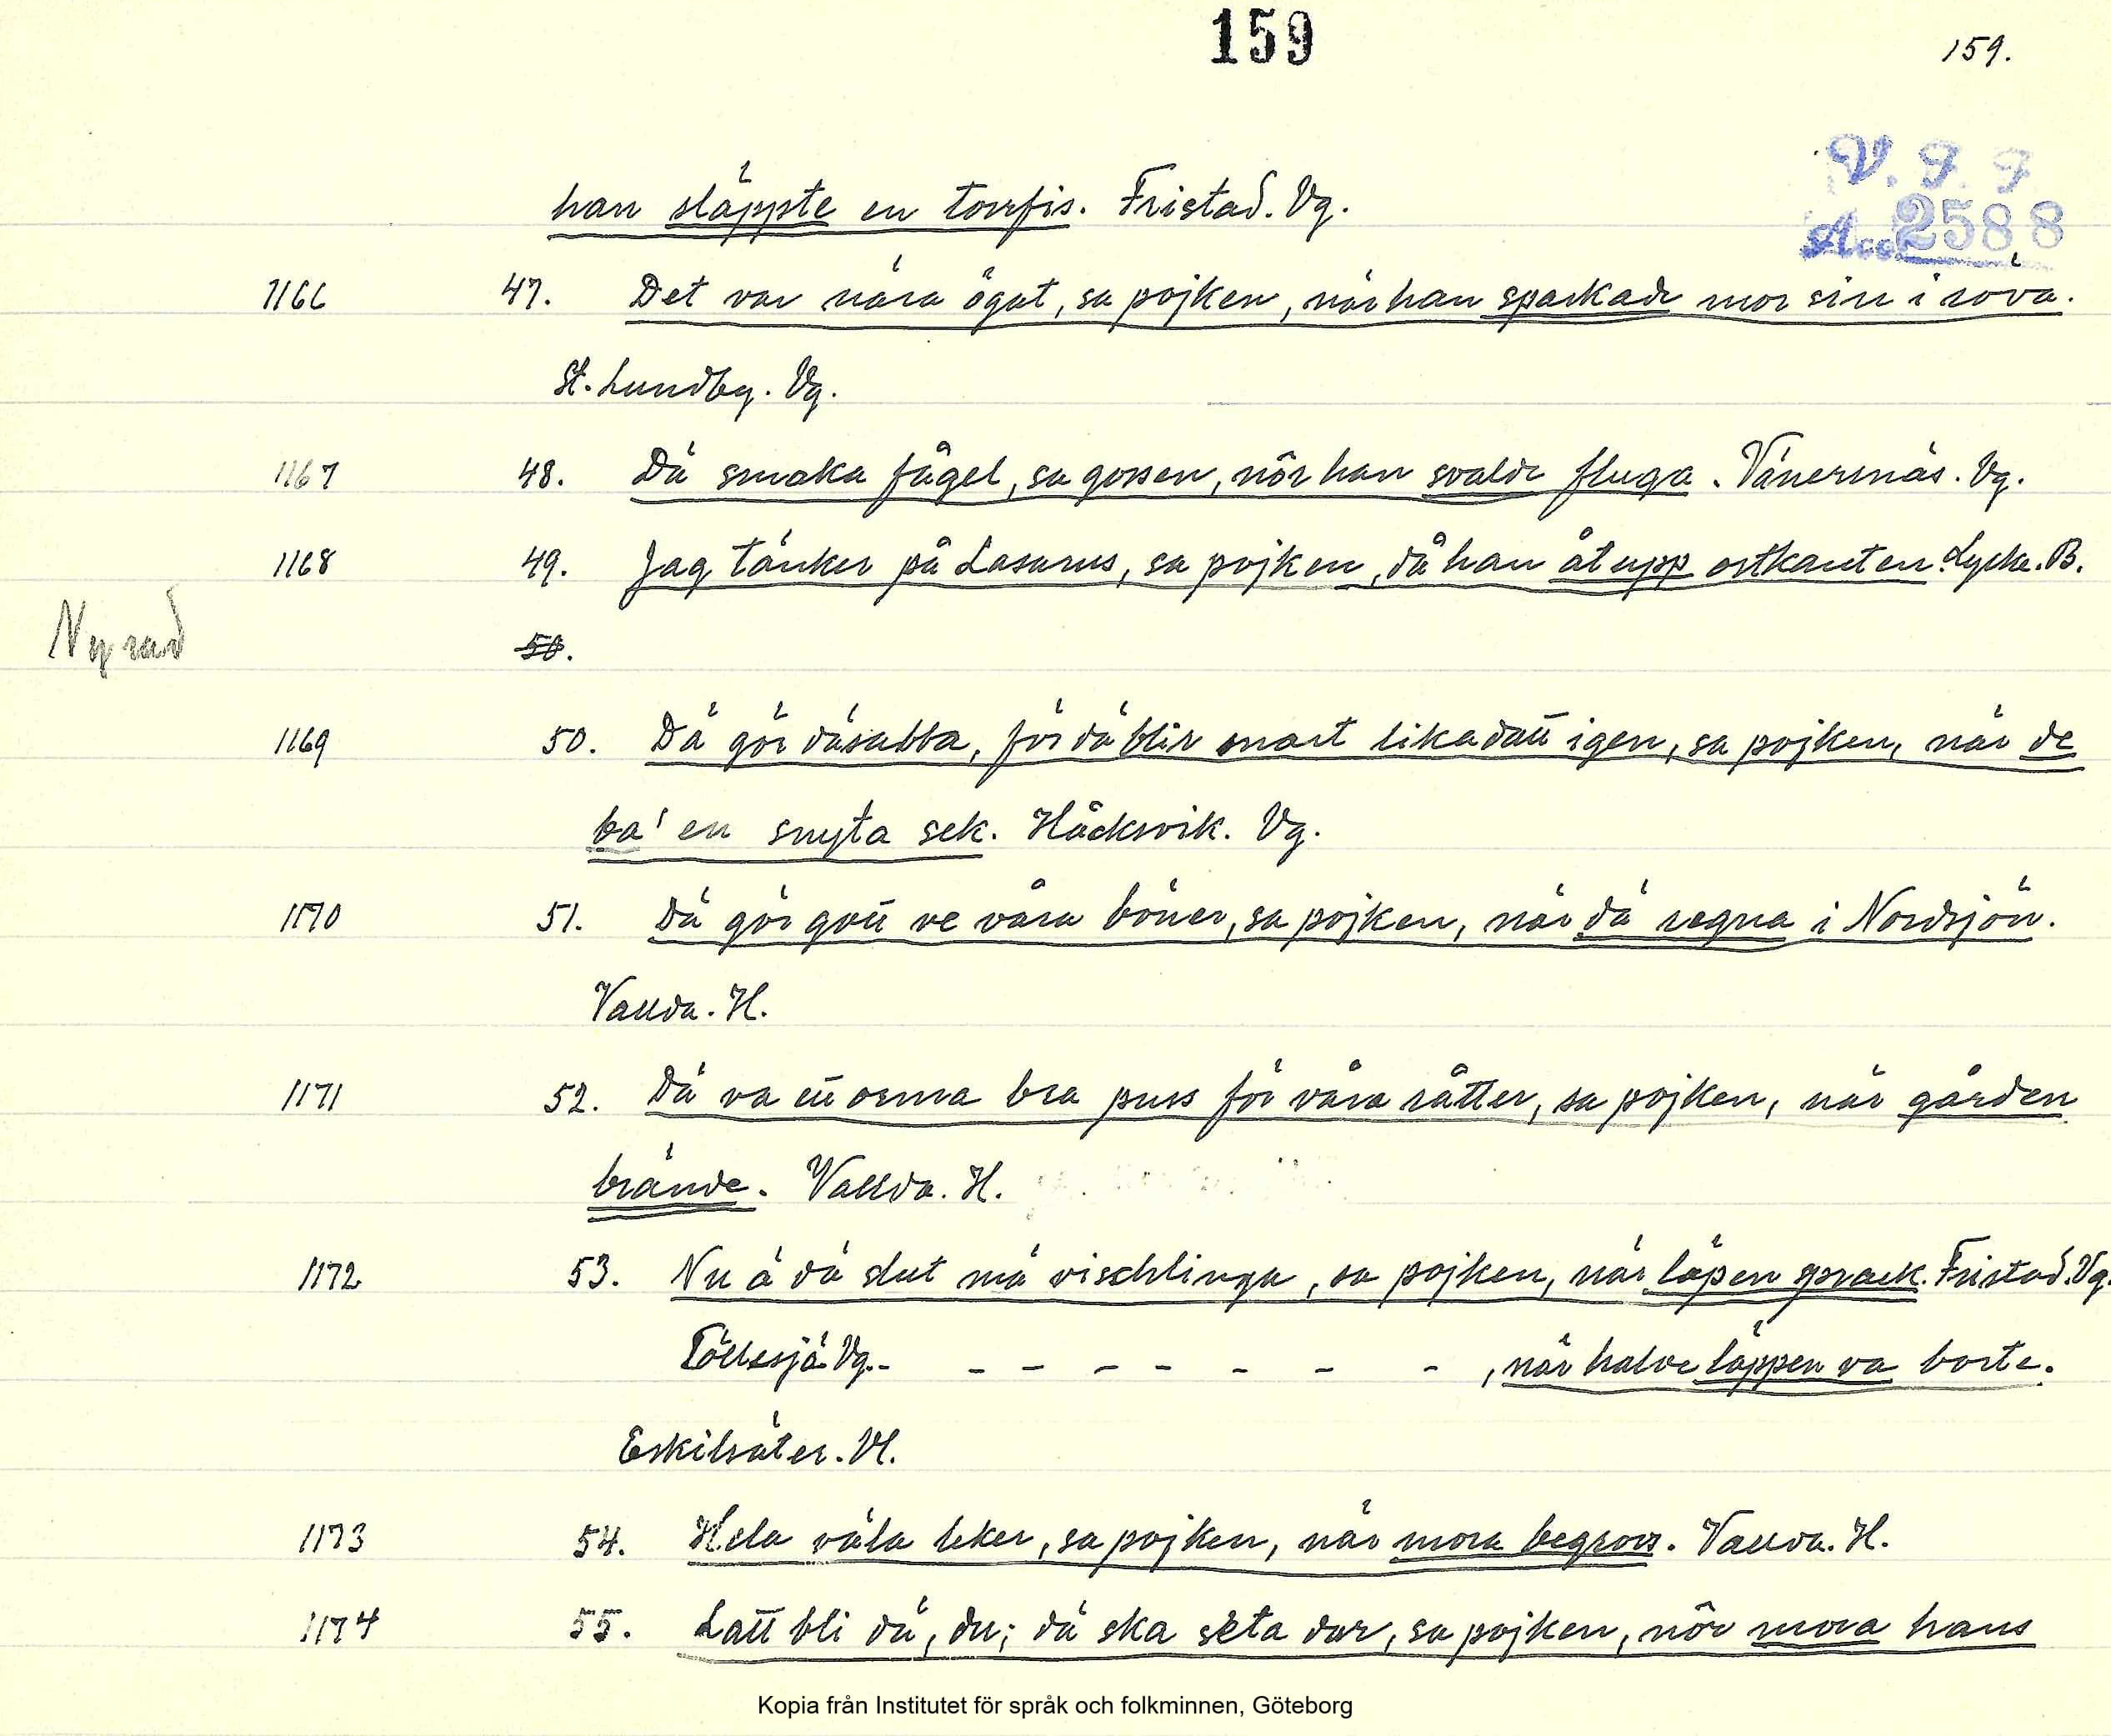 159
159.
V. F. F
Acc. 2588
han släppte en torrfis. Fristad. Vg.
1166 47. Det var nära ögat, sa pojken, när han sparkade mor sin i röva.
St. Lundby. Vg.
1167 48. Dä smaka fågel, sa gossen, nôr han svalde fluga. Vänersnäs. Vg.
1168 49. Jag tänker på Lasarus, sa pojken, då han åt upp ostkanten. Lycke. B.
Ny rad 50.
1169 50. Dä gör däsabba, för dä blir snart likadant igen, sa pojken, när de
ba' en snyta sek. Håcksvik. Vg.
1170 51. Dä gör gott ve våra böner, sa pojken, när dä regna i Nordsjön.
Vallda. H.
1171 52. Dä va ett osma bra puss för våra råtter, sa pojken, när gården
brände. Vallda. H.
1172 53. Nu ä dä slut mä vischlinga, sa pojken, när läpen sprack. Fristad. Vg.
Töllsjö. Vg. - - - - - - - -, när halve läppen va borte.
Eskilsäter. Vl.
1173 54. Hela väla leker, sa pojken, när mora begrovs. Vallda. H.
1174 55. Latt bli dä, du; dä ska seta dar, sa pojken, nôr mora hans
Kopia från Institutet för språk och folkminnen, Göteborg